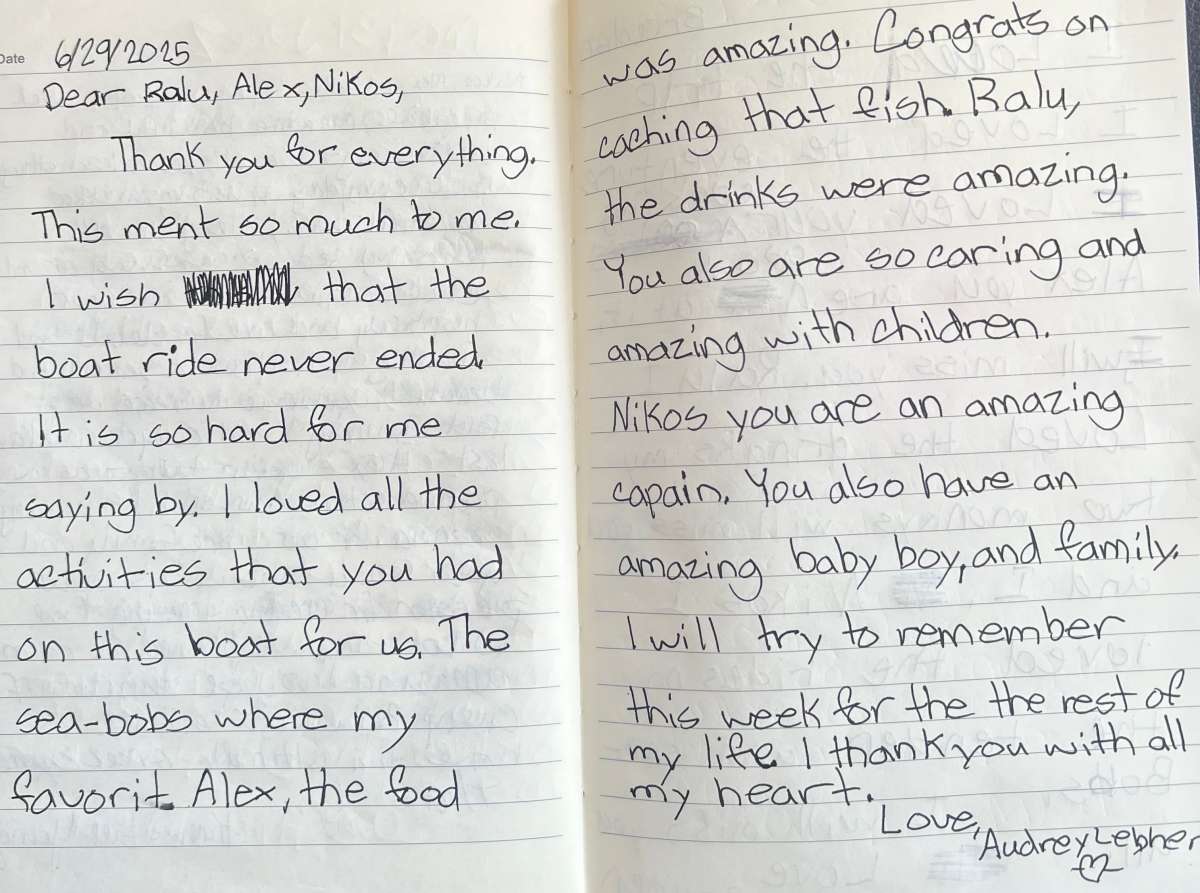 Date 6/29/2025
Dear Ralu, Alex, Nikos,
Thank you for everything.
This ment so much to me.
I wish that the
boat ride never ended.
It is so hard for me
saying by. I loved all the
activities that you had
on this boat for us. The
sea-bobs where my
favorit. Alex, the food
was amazing. Congrats on
caching that fish. Ralu,
the drinks were amazing.
You also are so caring and
amazing with children.
Nikos you are an amazing
capain. You also have an
amazing baby boy, and family.
I will try to remember
this week for the the rest of
my life. I thank you with all
my heart.
Love,
Audrey